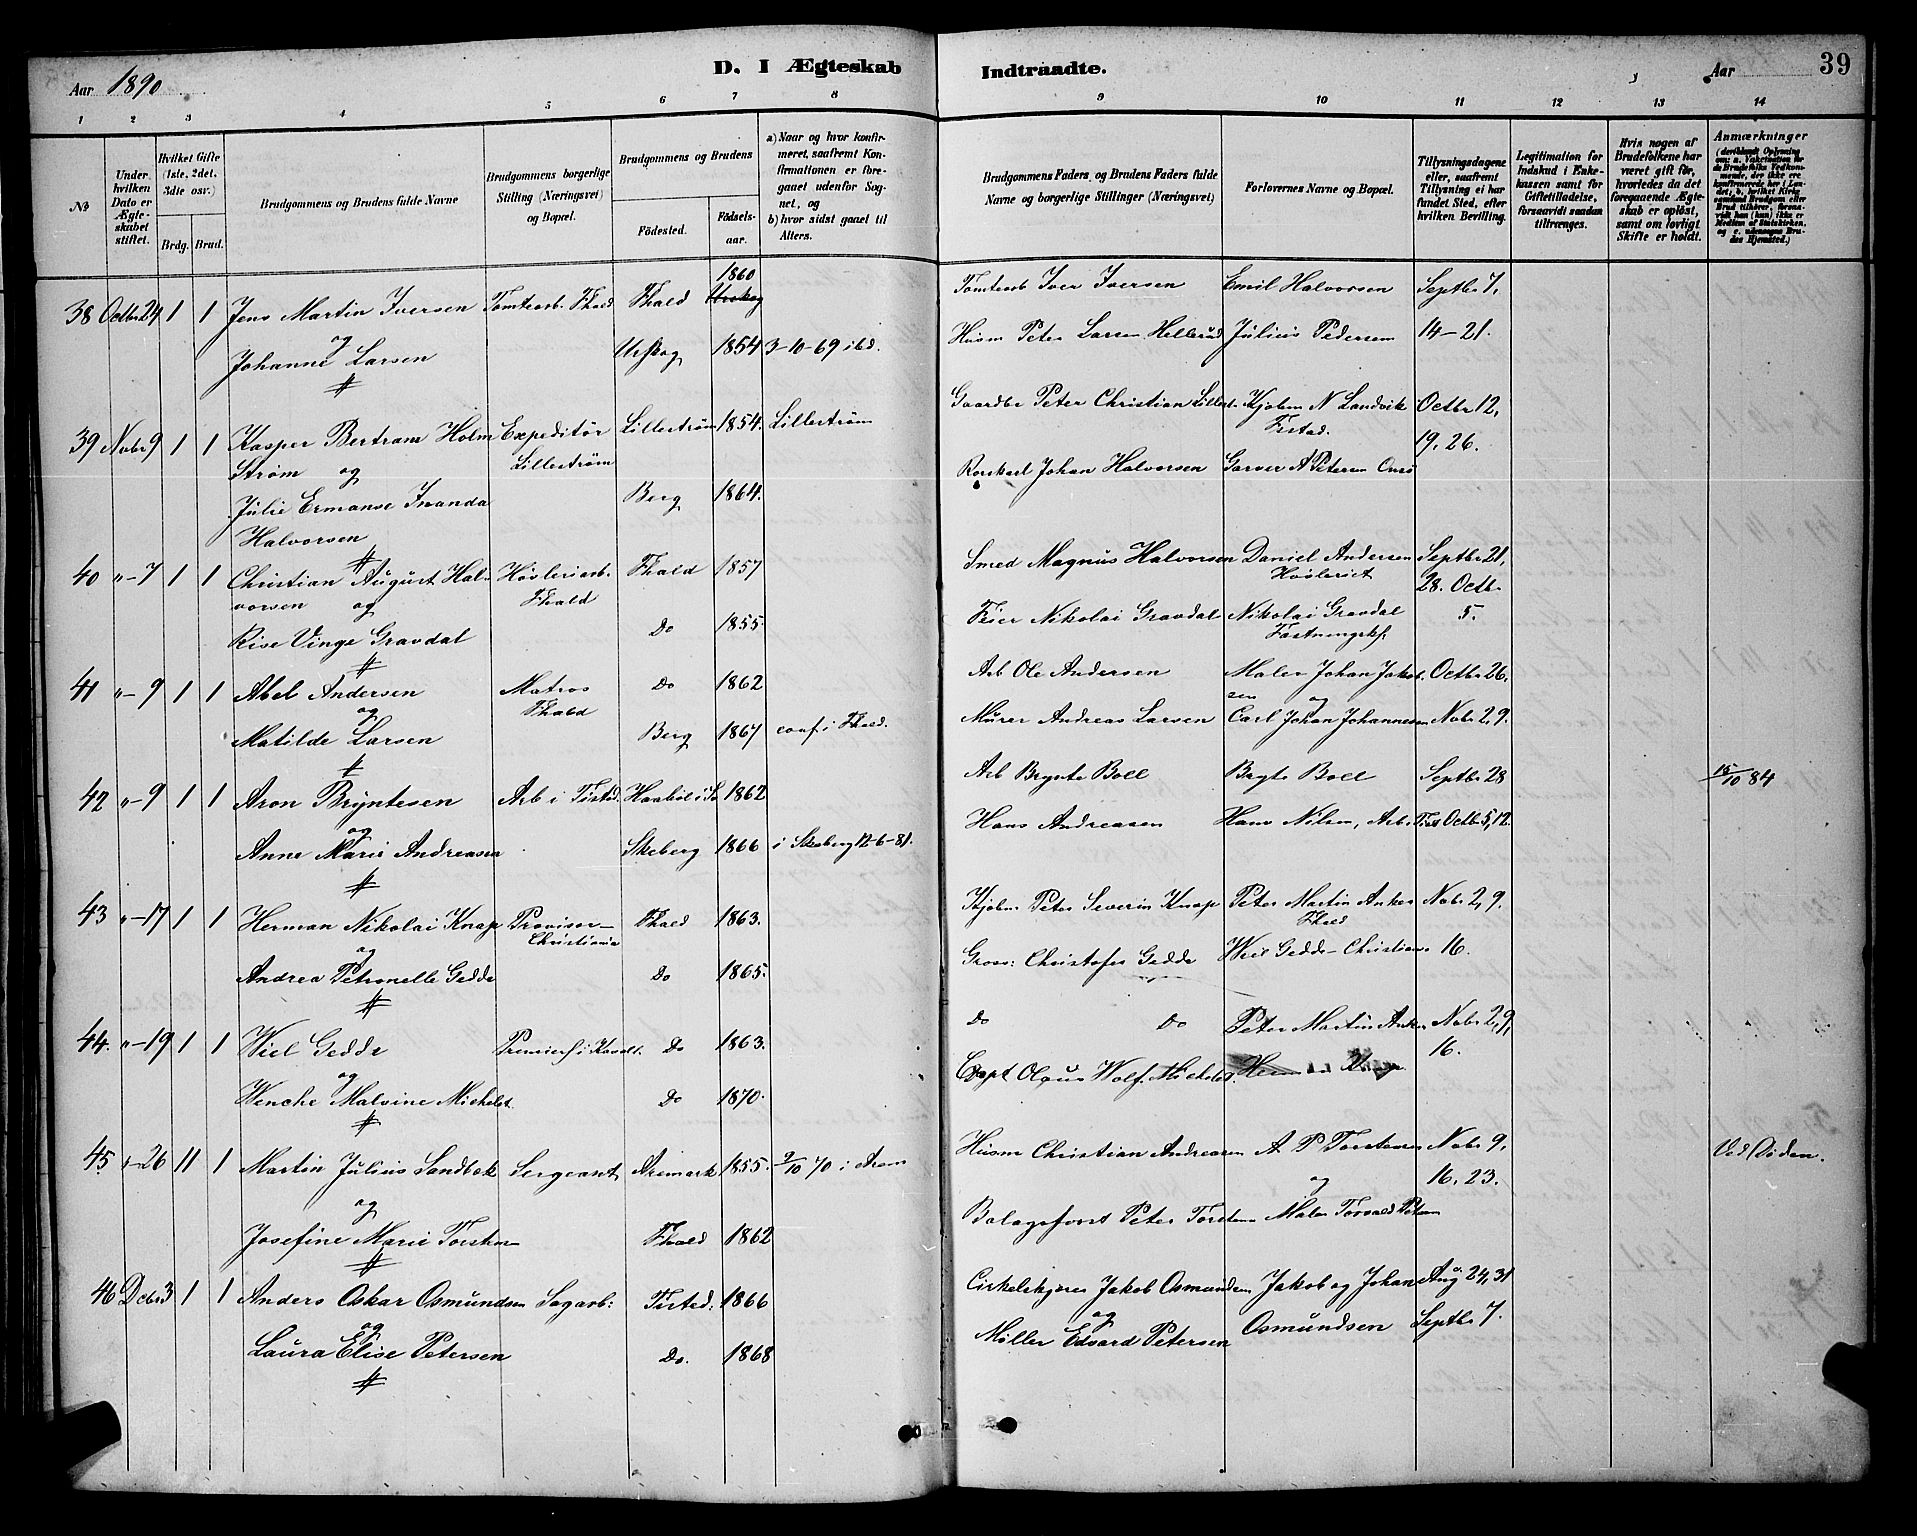 Aar 1890
D. I Ægteskab Indtraadte.
Aar 39
1 2 3 4 5 6 7 8 9 10 11 12 13 14
№
Under hvilken Dato er Ægteskabet stiftet.
Hvilket Gifte (1ste, 2det, 3die osv.)
Brdg. Brud.
Brudgommens og Brudens fulde Navne
Brudgommens borgerlige Stilling (Næringsvei) og Bopæl.
Brudgommens og Brudens
Fødested. Fødselsaar.
a) Naar og hvor konfirmeret, saafremt Konfirmationen er foregaaet udenfor Sognet, og
b) hvor sidst gaaet til Alters.
Brudgommens Faders, og Brudens Faders fulde Navne og borgerlige Stillinger (Næringsvei)
Forlovernes Navne og Bopæl.
Tillysningsdagene eller, saafremt Tillysning ei har fundet Sted, efter hvilken Bevilling.
Legitimation for Indskud i Enkekassen samt for Giftetilladelse, forsaavidt saadan tiltrænges.
Hvis nogen af Brudefolkene har været gift før, hvorledes da det foregaaende Ægteskab er opløst, samt om lovligt Skifte er holdt.
Anmærkninger
38 Octbr 24 1 1 Jens Martin Iversen Tomtearb. Fhald Fhald 1860 Tomtearb Iver Iversen Emil Halvorsen Septbr 7,
og
Johanne Larsen Urskog 1854 3-10-69 ibd. Husm Peter Larsen Hellerud Julius Pedersen 14-21.
39 Nobr 9 1 1 Kasper Bertram Holm Expeditør Lillestrøm 1854. Lillestrøm Gaardbr Peter Christian Lillest. Kjøbm N Landvik Octbr 12,
Strøm og Lillestrøm Tistad. 19, 26.
Julie Ermanse Inanda Berg 1864. Rorskarl Johan Halvorsen Garver A Petersen Onsø
Halvorsen
40 "-7 1 1 Christian August Hal- Høvleriarb. Fhald 1857 Smed Magnus Halvorsen Daniel Andersen Septbr 21,
vorsen og Fhald Høvleriet 28. Octbr
Rise Vinge Gravdal Do 1855. Feier Nikolai Gravdal Nikolai Gravdal 5.
41 "-9 1 1 Abel Andersen Matros Do 1862 Arb Ole Andersen Maler Johan Jakob- Octbr 26.
og Fhald sen og
Matilde Larsen Berg 1867 conf i Fhald. Murer Andreas Larsen Carl Johan Johannesen Nobr 2, 9.
42 "-9 1 1 Aron Bryntesen Arb i Tistad. 1862 Arb Brynte Boll Brynte Boll Septbr 28 15/10 84
og
Anne Marie Andreasen Skeberg 1866 i Skeberg 12-6-81. Hans Andreasen Hans Nilsen, Arb. Tist Octbr 5, 12
43 "-17 1 1 Herman Nikolai Knap Provisor- Fhald 1863. Kjøbm Peter Severin Knap Peter Martin Anker Nobr 2, 9.
og Christiania Fhald
Andrea Petronelle Gedde Do 1865. Gross: Christofer Gedde Wiel Gedde- Christian. 16.
44. "-19 1 1 Wiel Gedde Premierl i Kavall. Do 1863. Do Do Peter Martin Anker Nobr 2, 9,
og 16.
Wenche Malvine Michelet Do 1870. Capt Olaus Wolf. Michelet.
45 "-26 11 1 Martin Julius Sandbæk Sergeant Aremark 1855. 9/10 70 i Arem Husm Christian Andreasen A P Torstensen Nobr 9, Ved Døden.
og og 16. 23.
Josefine Marie Torstensen Fhald 1862 Peter Torstensen Maler Torvald Petersen
46 Dcbr 3 1 1 Anders Oskar Osmundsen Sagarb: Tisted. 1866 Cirkelskjærer Jakob Osmundsen Jakob og Johan Aug 24, 31
og og
Laura Elise Petersen Do. 1868 Møller Edvard Petersen Osmundsen Septbr 7.